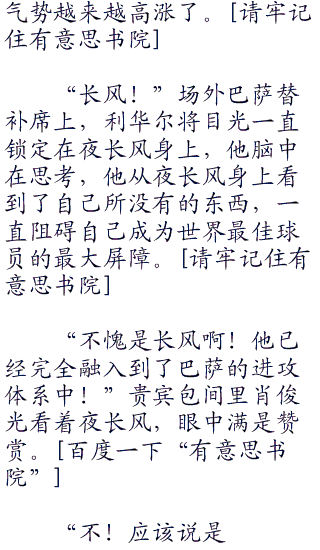 气势越来越高涨了。[请牢记
住有意思书院]
“长风！”场外巴萨替
补席上，利华尔将目光一直
锁定在夜长风身上，他脑中
在思考，他从夜长风身上看
到了自己所没有的东西，一
直阻碍自己成为世界最佳球
员的最大屏障。[请牢记住有
意思书院]
“不愧是长风啊！他已
经完全融入到了巴萨的进攻
体系中！”贵宾包间里肖俊
光看着夜长风，眼中满是赞
赏。[百度一下“有意思书
院”]
“不！应该说是